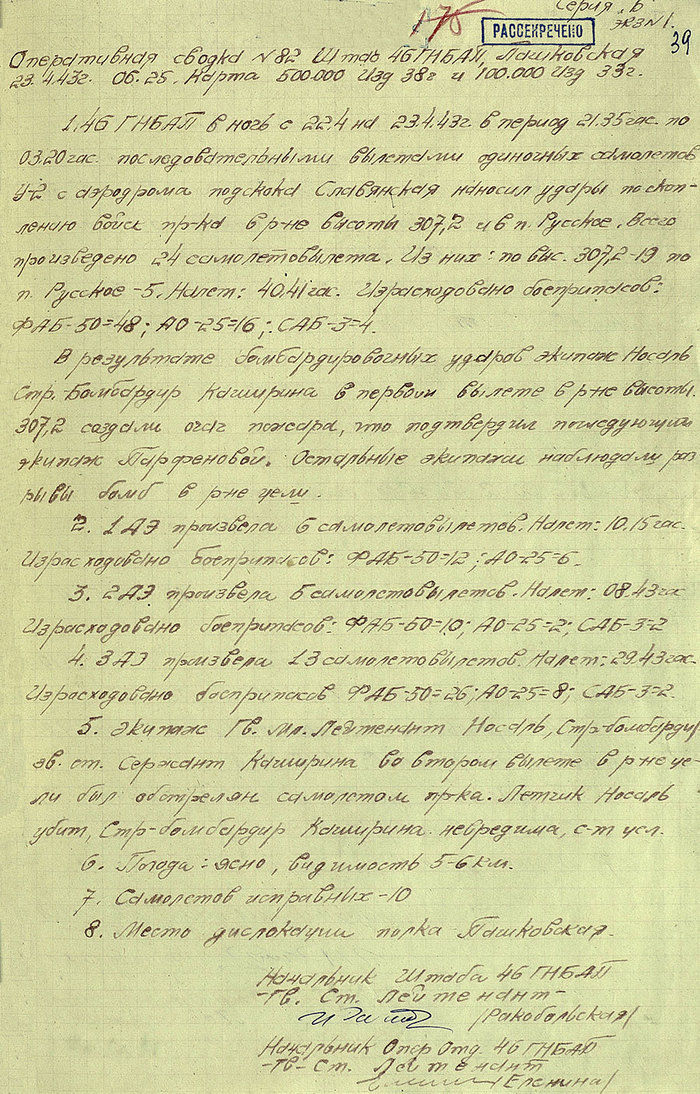 Серия „Б"
ЭКЗ N1.
РАССЕКРЕЧЕНО
39
Оперативная сводка N82 Штаб 46 ГНБАП, Пашковская
23.4.43г. 06.25. Карта 500.000 изд 38г и 100.000 изд 33г.
1. 46 ГНБАП в ночь с 22.4 на 23.4.43г. в период 21.35 час. по
03.20 час. последовательными вылетами одиночных самолетов
У-2 с аэродрома подскока Славянская наносил удары по скоп-
лению войск пр-ка в р-не высоты 307,2 и в п. Русское. Всего
произведено 24 самолетовылета. Из них: по выс. 307,2-19 по
п. Русское-5. Налет: 40.41 час. Израсходовано боеприпасов:
ФАБ-50=48; АО-25=16; САБ-3=4.
В результате бомбардировочных ударов экипаж Носаль
Стр. Бомбардир Каширина в первом вылете в р-не высоты
307,2 создали очаг пожара, что подтвердил последующий
экипаж Парфеновой. Остальные экипажи наблюдали раз
рывы бомб в р-не цели.
2. 1 АЭ произвела 6 самолетовылетов. Налет: 10.15 час.
Израсходовано боеприпасов: ФАБ-50=12; АО-25=6.
3. 2 АЭ произвела 5 самолетовылетов. Налет: 08.43 час
Израсходовано боеприпасов: ФАБ-50=10; АО-25=2; САБ-3=2
4. 3 АЭ произвела 13 самолетовылетов. Налет: 29.43 час.
Израсходовано боеприпасов ФАБ-50=26; АО-25=8; САБ-3=2.
5. Экипаж Гв. Мл. Лейтенант Носаль, Стр-бомбардир
гв. ст. Сержант Каширина во втором вылете в р-не це-
ли был обстрелян самолетом пр-ка. Летчик Носаль
убит, Стр-бомбардир Каширина невредима, с-т усл.
6. Погода: ясно, видимость 5-6 км.
7. Самолетов исправных-10
8. Место дислокации полка Пашковская.
Начальник Штаба 46 ГНБАП
-Гв. Ст. Лейтенант-
/Ракобольская/
Начальник Опер Отд. 46 ГНБАП
-Гв- Ст. Лейтенант
/Еленина/